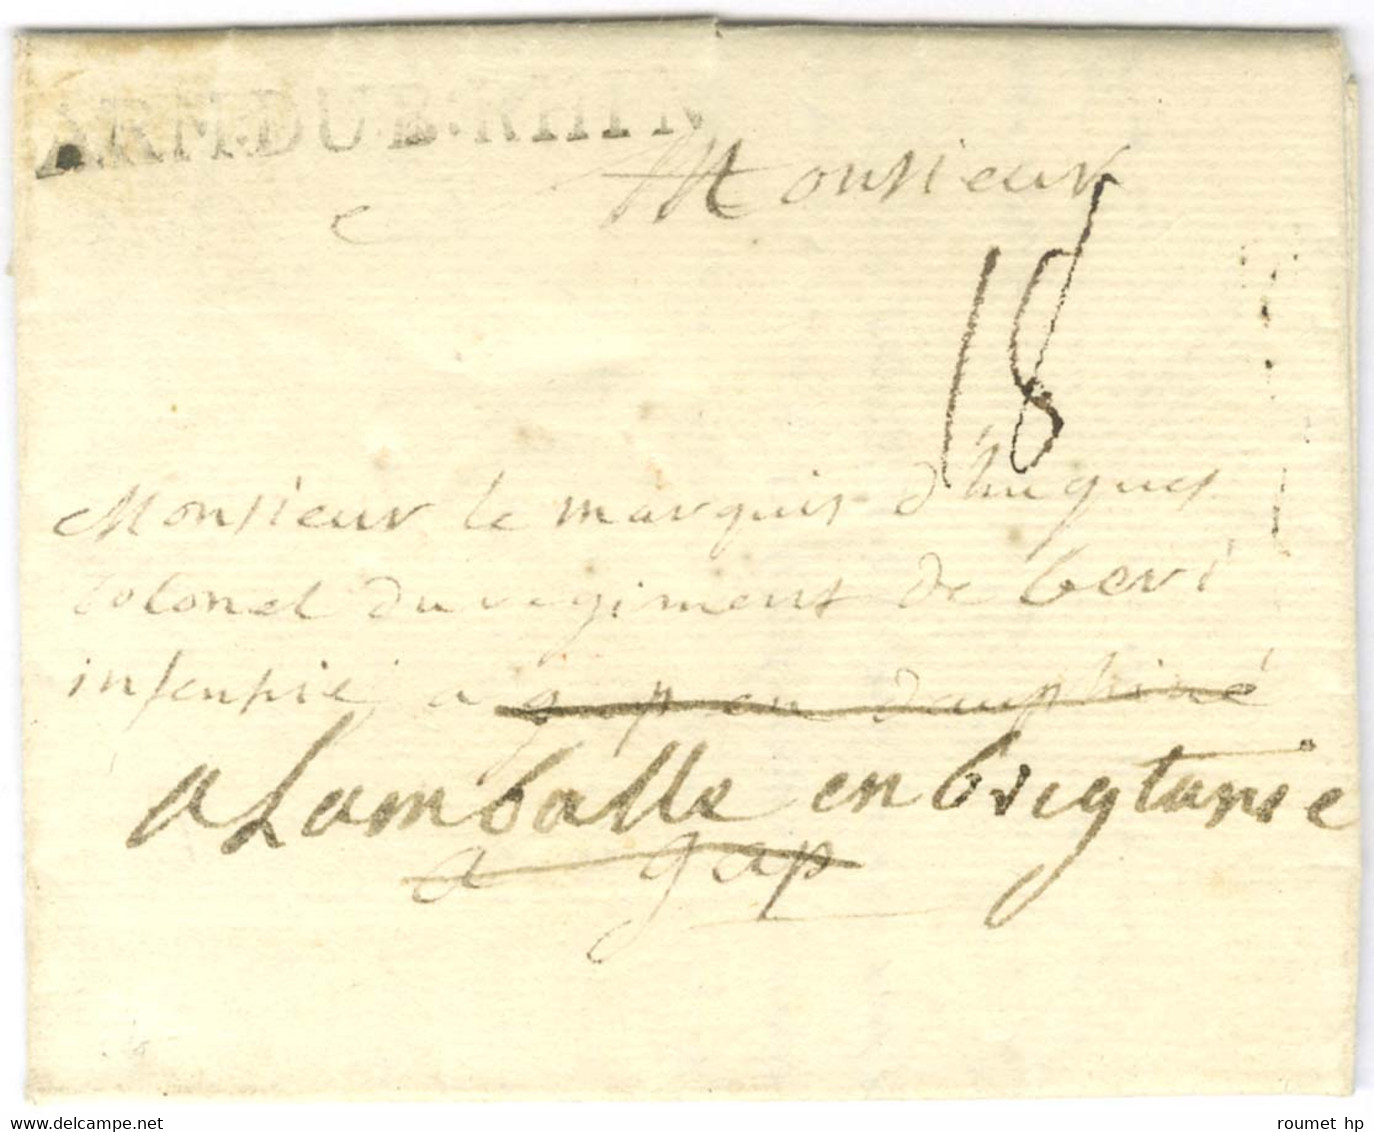 ARM.DU B:RHIN
Monsieur
18
Monsieur le marquis d'hugues
Colonel du regiment de beri
infenterie a gap en dauphiné
a Lamballe en bregtanie
a gap
www.delcampe.net
roumet hp